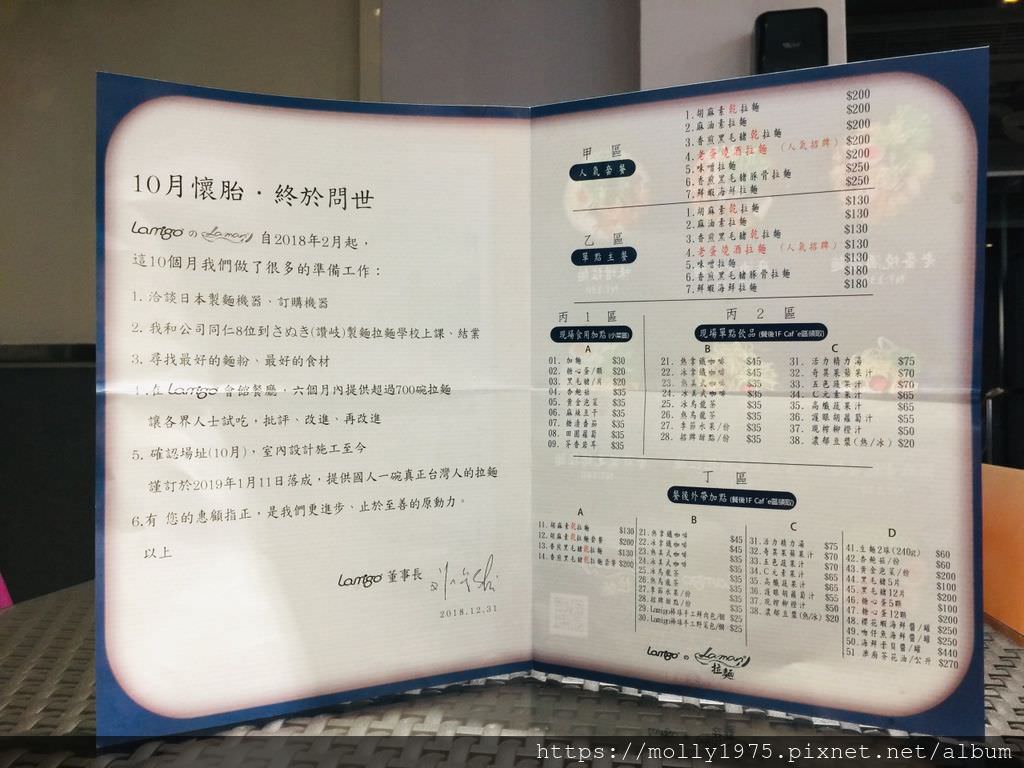 10月懷胎‧終於問世
Lamigo の Lamari 自2018年2月起，
這10個月我們做了很多的準備工作：
1. 洽談日本製麵機器、訂購機器
2. 我和公司同仁8位到さぬき(讚岐)製麵拉麵學校上課、結業
3. 尋找最好的麵粉、最好的食材
4. 在 Lamigo 會館餐廳，六個月內提供超過700碗拉麵
讓各界人士試吃，批評、改進、再改進
5. 確認場址(10月)，室內設計施工至今
謹訂於2019年1月11日落成，提供國人一碗真正台灣人的拉麵
6.有 您的惠顧指正，是我們更進步、止於至善的原動力。
以上
Lamigo 董事長
2018.12.31
甲 區
人氣套餐
1.胡麻素乾拉麵 $200
2.麻油素拉麵 $200
3.香煎黑毛豬乾拉麵 $200
4.老蛋燒酒拉麵 (人氣招牌) $200
5.味噌拉麵 $200
6.香煎黑毛豬豚骨拉麵 $250
7.鮮蝦海鮮拉麵 $250
乙 區
單點主餐
1.胡麻素乾拉麵 $130
2.麻油素拉麵 $130
3.香煎黑毛豬乾拉麵 $130
4.老蛋燒酒拉麵 (人氣招牌) $130
5.味噌拉麵 $130
6.香煎黑毛豬豚骨拉麵 $180
7.鮮蝦海鮮拉麵 $180
丙 1 區
現場食用加點(小菜區)
A
01. 加麵 $30
02. 糖心蛋/顆 $20
03. 黑毛豬/片 $20
04. 杏鮑菇 $35
05. 黃金泡菜 $35
06. 麻辣豆干 $35
07. 糖漬番茄 $35
08. 田園蘿蔔 $35
09. 芥香若芽 $35
丙 2 區
現場單點飲品(餐後1F Caf'e區領取)
B
21. 熱拿鐵咖啡 $45
22. 冰拿鐵咖啡 $45
23. 熱美式咖啡 $35
24. 冰美式咖啡 $35
25. 冰烏龍茶 $35
26. 熱烏龍茶 $35
27. 季節水果/份 $35
28. 招牌甜點/份 $35
C
31. 活力精力湯 $75
32. 奇異果蘋果汁 $70
33. 五色蔬果汁 $70
34. C元素果汁 $65
35. 高纖蔬果汁 $65
36. 護眼胡蘿蔔汁 $55
37. 現榨柳橙汁 $50
38. 濃郁豆漿(熱/冰) $20
丁 區
餐後外帶加點(餐後1F Caf'e區領取)
A
11. 胡麻素乾拉麵 $130
12. 胡麻素乾拉麵套餐 $200
13. 香煎黑毛豬乾拉麵 $130
14. 香煎黑毛豬乾拉麵套餐 $200
B
21. 熱拿鐵咖啡 $45
22. 冰拿鐵咖啡 $45
23. 熱美式咖啡 $35
24. 冰美式咖啡 $35
25. 冰烏龍茶 $35
26. 熱烏龍茶 $35
27. 季節水果/份 $35
28. 招牌甜點/份 $35
29. Lamigo棒球手工鮮肉包/個 $25
30. Lamigo棒球手工野菜包/個 $25
C
31. 活力精力湯 $75
32. 奇異果蘋果汁 $70
33. 五色蔬果汁 $70
34. C元素果汁 $65
35. 高纖蔬果汁 $65
36. 護眼胡蘿蔔汁 $55
37. 現榨柳橙汁 $50
38. 濃郁豆漿(熱/冰) $20
D
41. 生麵2球(240g) $60
42. 杏鮑菇/份 $60
43. 黃金泡菜/份 $200
44. 黑毛豬5片 $100
45. 黑毛豬12片 $200
46. 糖心蛋5顆 $100
47. 糖心蛋12顆 $200
48. 櫻花蝦海鮮醬/罐 $250
49. 吻仔魚海鮮醬/罐 $250
50. 海鮮干貝醬/罐 $440
51. 茶花油/公升 $270
Lamigo の Lamari
拉麵
https://molly1975.pixnet.net/album